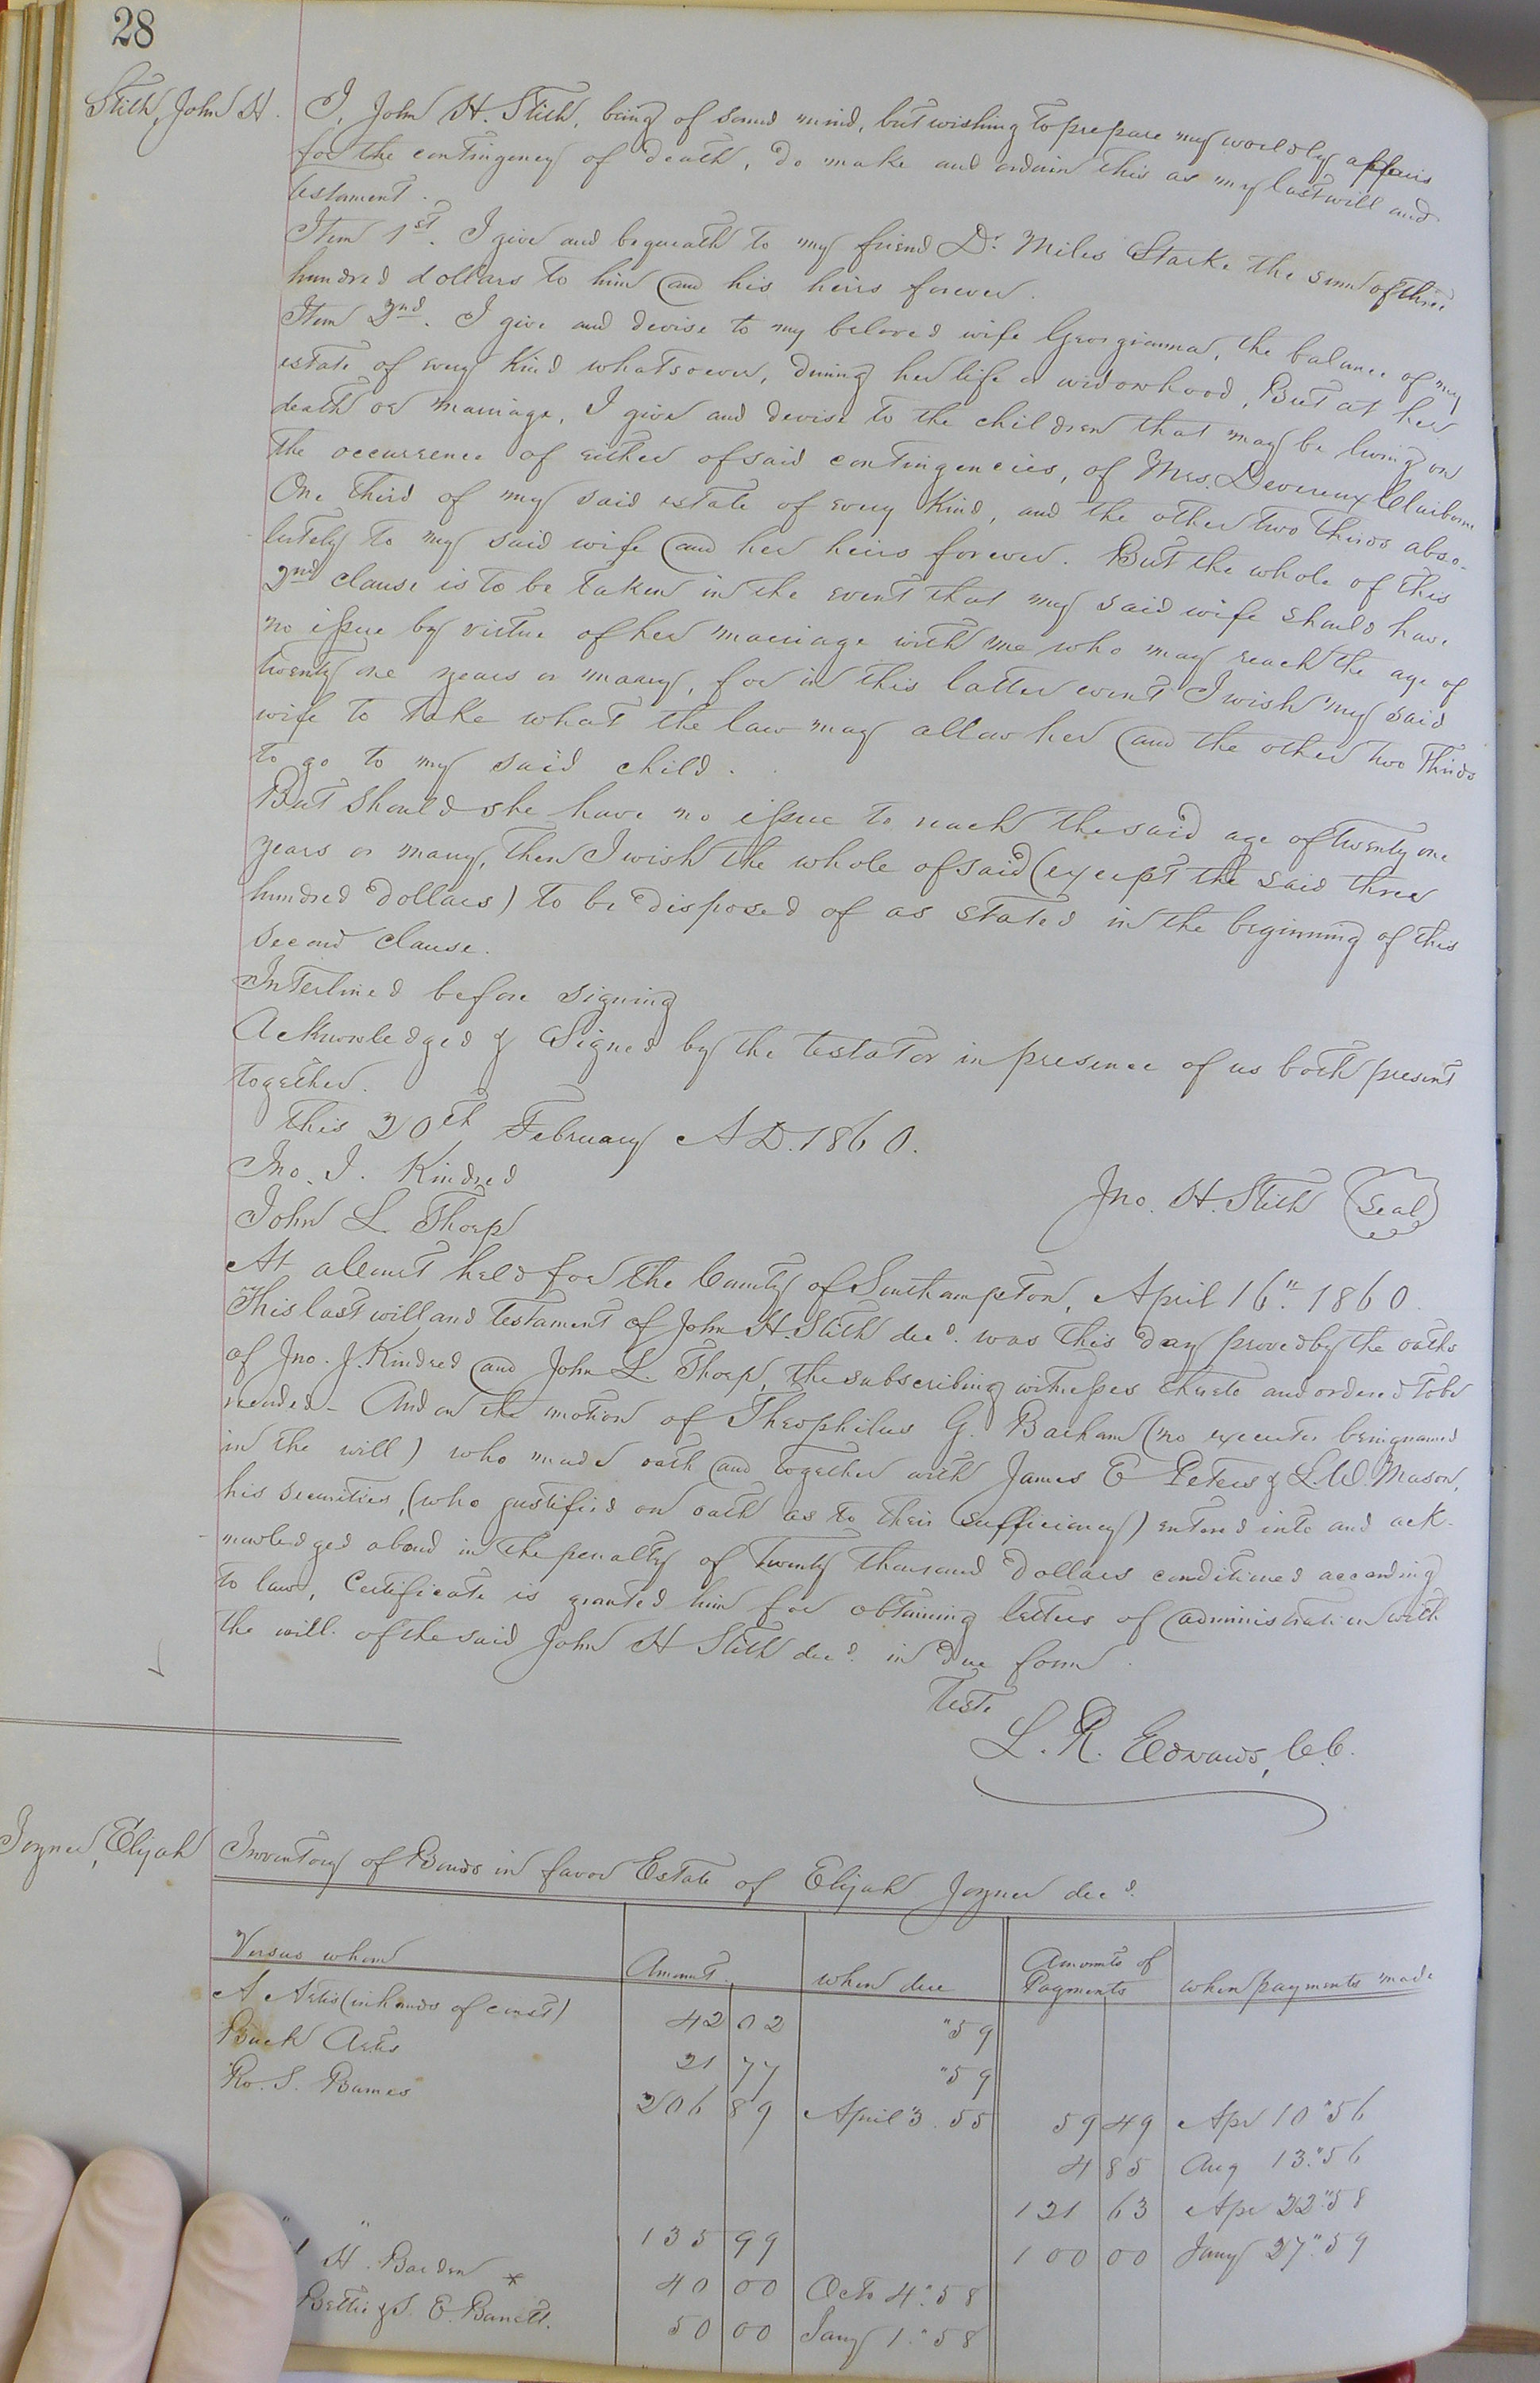 28
Stith, John H.
I, John H. Stith, being of sound mind, but wishing to prepare my worldly affairs
for the contingency of death, do make and ordain this as my last will and
testament.
Item 1st. I give and bequeath to my friend Dr. Miles Starke the sum of three
hundred dollars to him and his heirs forever.
Item 2nd. I give and devise to my beloved wife Georgianna, the balance of my
estate of every kind whatsoever, during her life or widowhood, But at her
death or marriage, I give and devise to the children that may be living on
the occurrence of either of said contingencies, of Mrs. Devereux Claiborne
One third of my said estate of every kind, and the other two thirds abso-
lutely to my said wife and her heirs forever. But the whole of this
2nd clause is to be taken in the event that my said wife should have
no issue by virtue of her marriage with me who may reach the age of
twenty one years or marry, for in this latter event I wish my said
wife to take what the law may allow her and the other two thirds
to go to my said child.
But should she have no issue to reach the said age of twenty one
years or marry, then I wish the whole of said (except the said three
hundred dollars) to be disposed of as stated in the beginning of this
second clause.
Interlined before signing
Acknowledged & Signed by the testator in presence of us both present
together.
This 20th February A.D. 1860.
Jno. J. Kindred
Jno. H. Stith (Seal)
John L. Thorp
At a Court held for the County of Southampton, April 16". 1860.
This last will and testament of John H. Stith decd. was this day proved by the oaths
of Jno. J. Kindred and John L. Thorp, the subscribing witnesses thereto and ordered to be
recorded - And on the motion of Theophilus G. Barham (no executor being named
in the will) who made oath and together with James E Peters & L.W. Mason,
his securities, (who justified on oath as to their sufficiency) entered into and ack-
nowledged a bond in the penalty of twenty thousand dollars conditioned according
to law, Certificate is granted him for obtaining letters of administration with
the will of the said John H Stith decd. in due form.
Teste
L. R. Edwards, C.C.
Joyner, Elijah
Inventory of Bonds in favor Estate of Elijah Joyner decd.
Versus whom Amount. when due Amounts of Payments when payments made
A Artis (in hands of const) 42 02 "59
Buck Artis 21 77 "59
Ro. S. Barnes 206 89 April 3. 55 59 49 Apr 10 "56
4 85 Aug 13. "56
121 63 Apr 22. "58
" " 135 99 100 00 Jany 27. "59
H. Barden * 40 00 Octo 4. "58
Bettie & J. E. Barrett. 50 00 Jany 1. "58